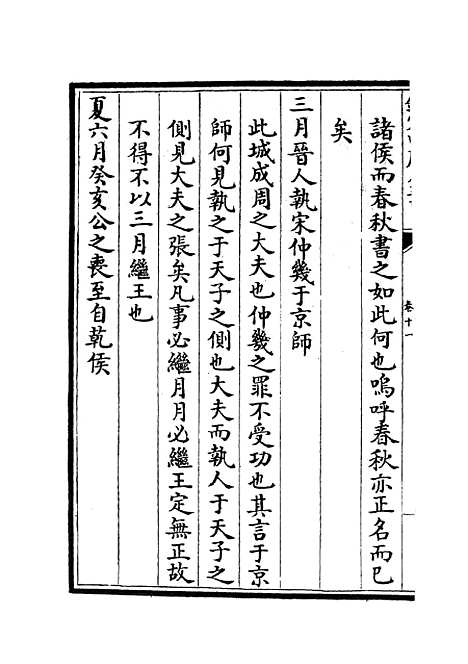 諸侯而春秋書之如此何也嗚呼春秋亦正名而已
矣
三月晉人執宋仲幾于京師
此城成周之大夫也仲幾之罪不受功也其言于京
師何見執之于天子之側也大夫而執人于天子之
側見大夫之張矣凡事必繼月月必繼王定無正故
不得不以三月繼王也
夏六月癸亥公之喪至自乾侯
卷十一